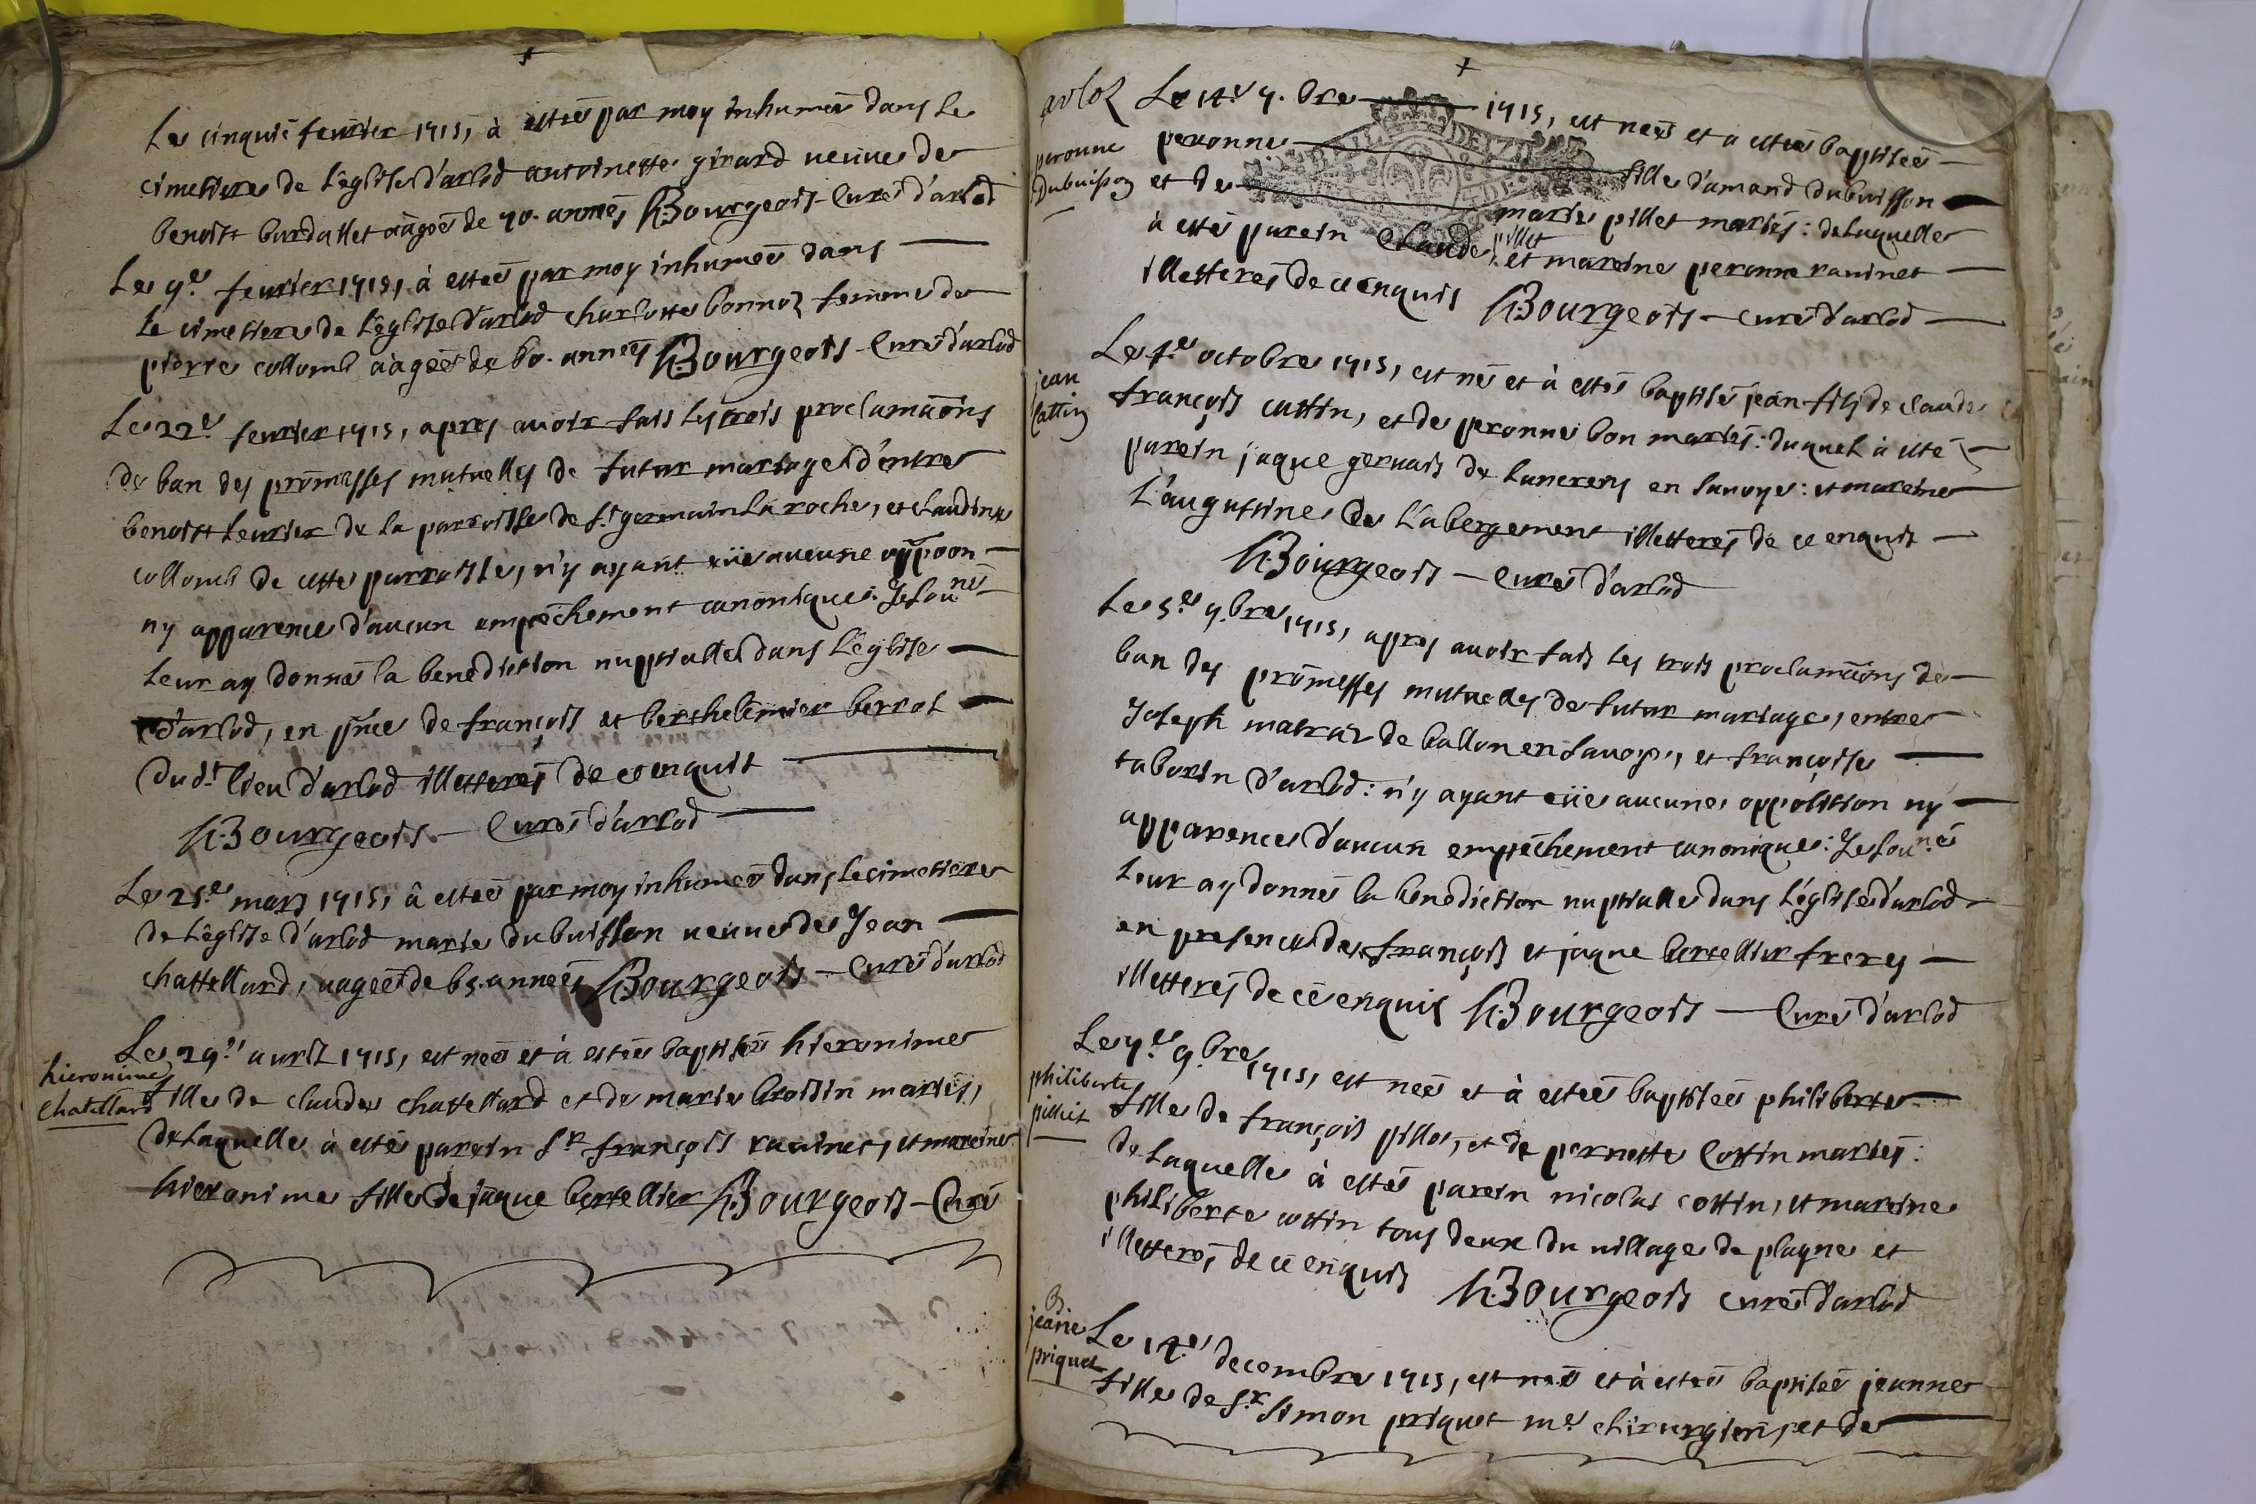 Le cinquiē feurier 1715, à estée par moy inhumeē dans le
cimetiere de L'eglise d'arlod antoinette girard veuue de
benoist burdallet aàgeē de 70. anneēs h.Bourgeois - Curé d'arlod
Le 9.e feurier 1715, à esteē par moy inhumeē dans
le cimetiere de L'eglise d'arlod charlotte bonnoz femme de
pierre collomb aàgeē de 60. anneēs h.Bourgeois - Curé d'arlod
Le 22.e feurier 1715, apres auoir fais les trois proclamaōns
de ban des promesses mutuelles de futur mariage d'entre
benoist Leurier de la parroisse de s.t germain La roche, et claudine
collomb de cette parroisse, n'y ayant eüe aucune oppoōn
ny apparence d'aucun empeschement canonique: Je sou.né
Leur ay donné la benediction nuptialle dans L'eglise
d'arlod, en pn̄ce de françois et berthelemier berrot
dud.t lieu d'arlod illetterés de ce enquis
h.Bourgeois - Curé d'arlod
Le 25.e mars 1715, à esteē par moy inhumeē dans le cimetiere
de L'eglise d'arlod marie dubuisson veuue de Jean
chattellard, aageē de 65. anneēs h.Bourgeois - Curé d'arlod
Le 29.e auril 1715, est neē et à esteē baptiseē hieronime
hieronime
chatellard
fille de claude chattellard et de marie broisin mariés,
de Laquelle à esté parein s.r françois rauinet, et mareine
hieronime fille de jaque bertellier h.Bourgeois - Curé
arloz
Le 14.e 7.bre 1715, est neēs et a esteē baptiseē
peronne
dubuisson
peronne fille d'amand dubuisson
et de marie pillet mariés: de Laquelle
à esté parein claude pillet et mareine peronne rauinet
illetterés de ce enquis h.Bourgeois - curé d'arlod
Le 4.e octobre 1715, est né et à esté baptisé jean fils de claude
jean
Cattin
françois cattin, et de peronne bon mariés: duquel à esté
parein jaque geruais de Lancrens en sauoye: et mareine
L'augustine de L'abergement illetterés de ce enquis
h.Bourgeois - Curé d'arlod
Le 5.e 9.bre 1715, apres auoir fais les trois proclamaōns de
ban des promesses mutuelles de futur mariage, entre
Joseph matraz de ballon en sauoye, et françoise
taborin d'arlod: n'y ayant eüe aucune opposition ny
apparence d'aucun empeschement canonique: Je sou.né
Leur ay donné la benediction nuptialle dans L'eglise d'arlod
en presence de françois et jaque bertellier freres
illetterés de ce enquis h.Bourgeois - Curé d'arlod
Le 7.e 9.bre 1715, est neē et à esteē baptiseē philiberte
philiberte
pilliet
fille de françois pillet, et de pernette Cottin mariés:
de Laquelle à esté parein nicolas cottin, et mareine
philiberte cottin tous deux du uillage de plagne et
illetterés de ce enquis h.Bourgeois curé d'arlod
B
jeane
priquet
Le 14.e decembre 1715, est neē et à esteē baptiseē jeanne
fille de s.r simon priquet m.e chirurgien, et de